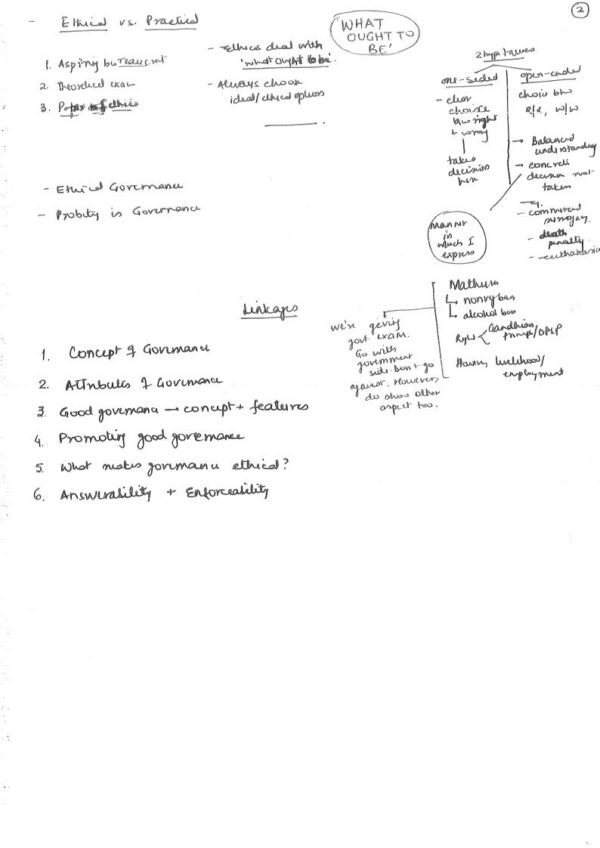 2
- Ethical vs. Practical
1. Aspiring bureaucrat
2. Theoretical exam
3. Paper of ethics
- Ethics deal with
'what ought to be'.
- Always choose
ideal/ethical options
WHAT
OUGHT TO
BE'
one-sided
- clear
choice
b/w right
+ wrong
takes
decision
here
open-ended
choice b/w
R/R, W/W
→ Balanced
understanding
→ concrete
decision not
taken
eg.
- commercial
surrogacy
- death
penalty
- euthanasia
Manner
in
which I
express
- Ethical Governance
- Probity in Governance
Linkages
1. Concept of Governance
2. Attributes of Governance
3. Good governance → concept + features
4. Promoting good governance
5. What makes governance ethical?
6. Answerability + Enforceability
we're giving
govt exam.
Go with
government
side. Don't go
against. However,
do show other
aspect too.
Mathura
↳ nonveg ban
↳ alcohol ban
Right < Gandhian
/DPSP
livelihood/
employment